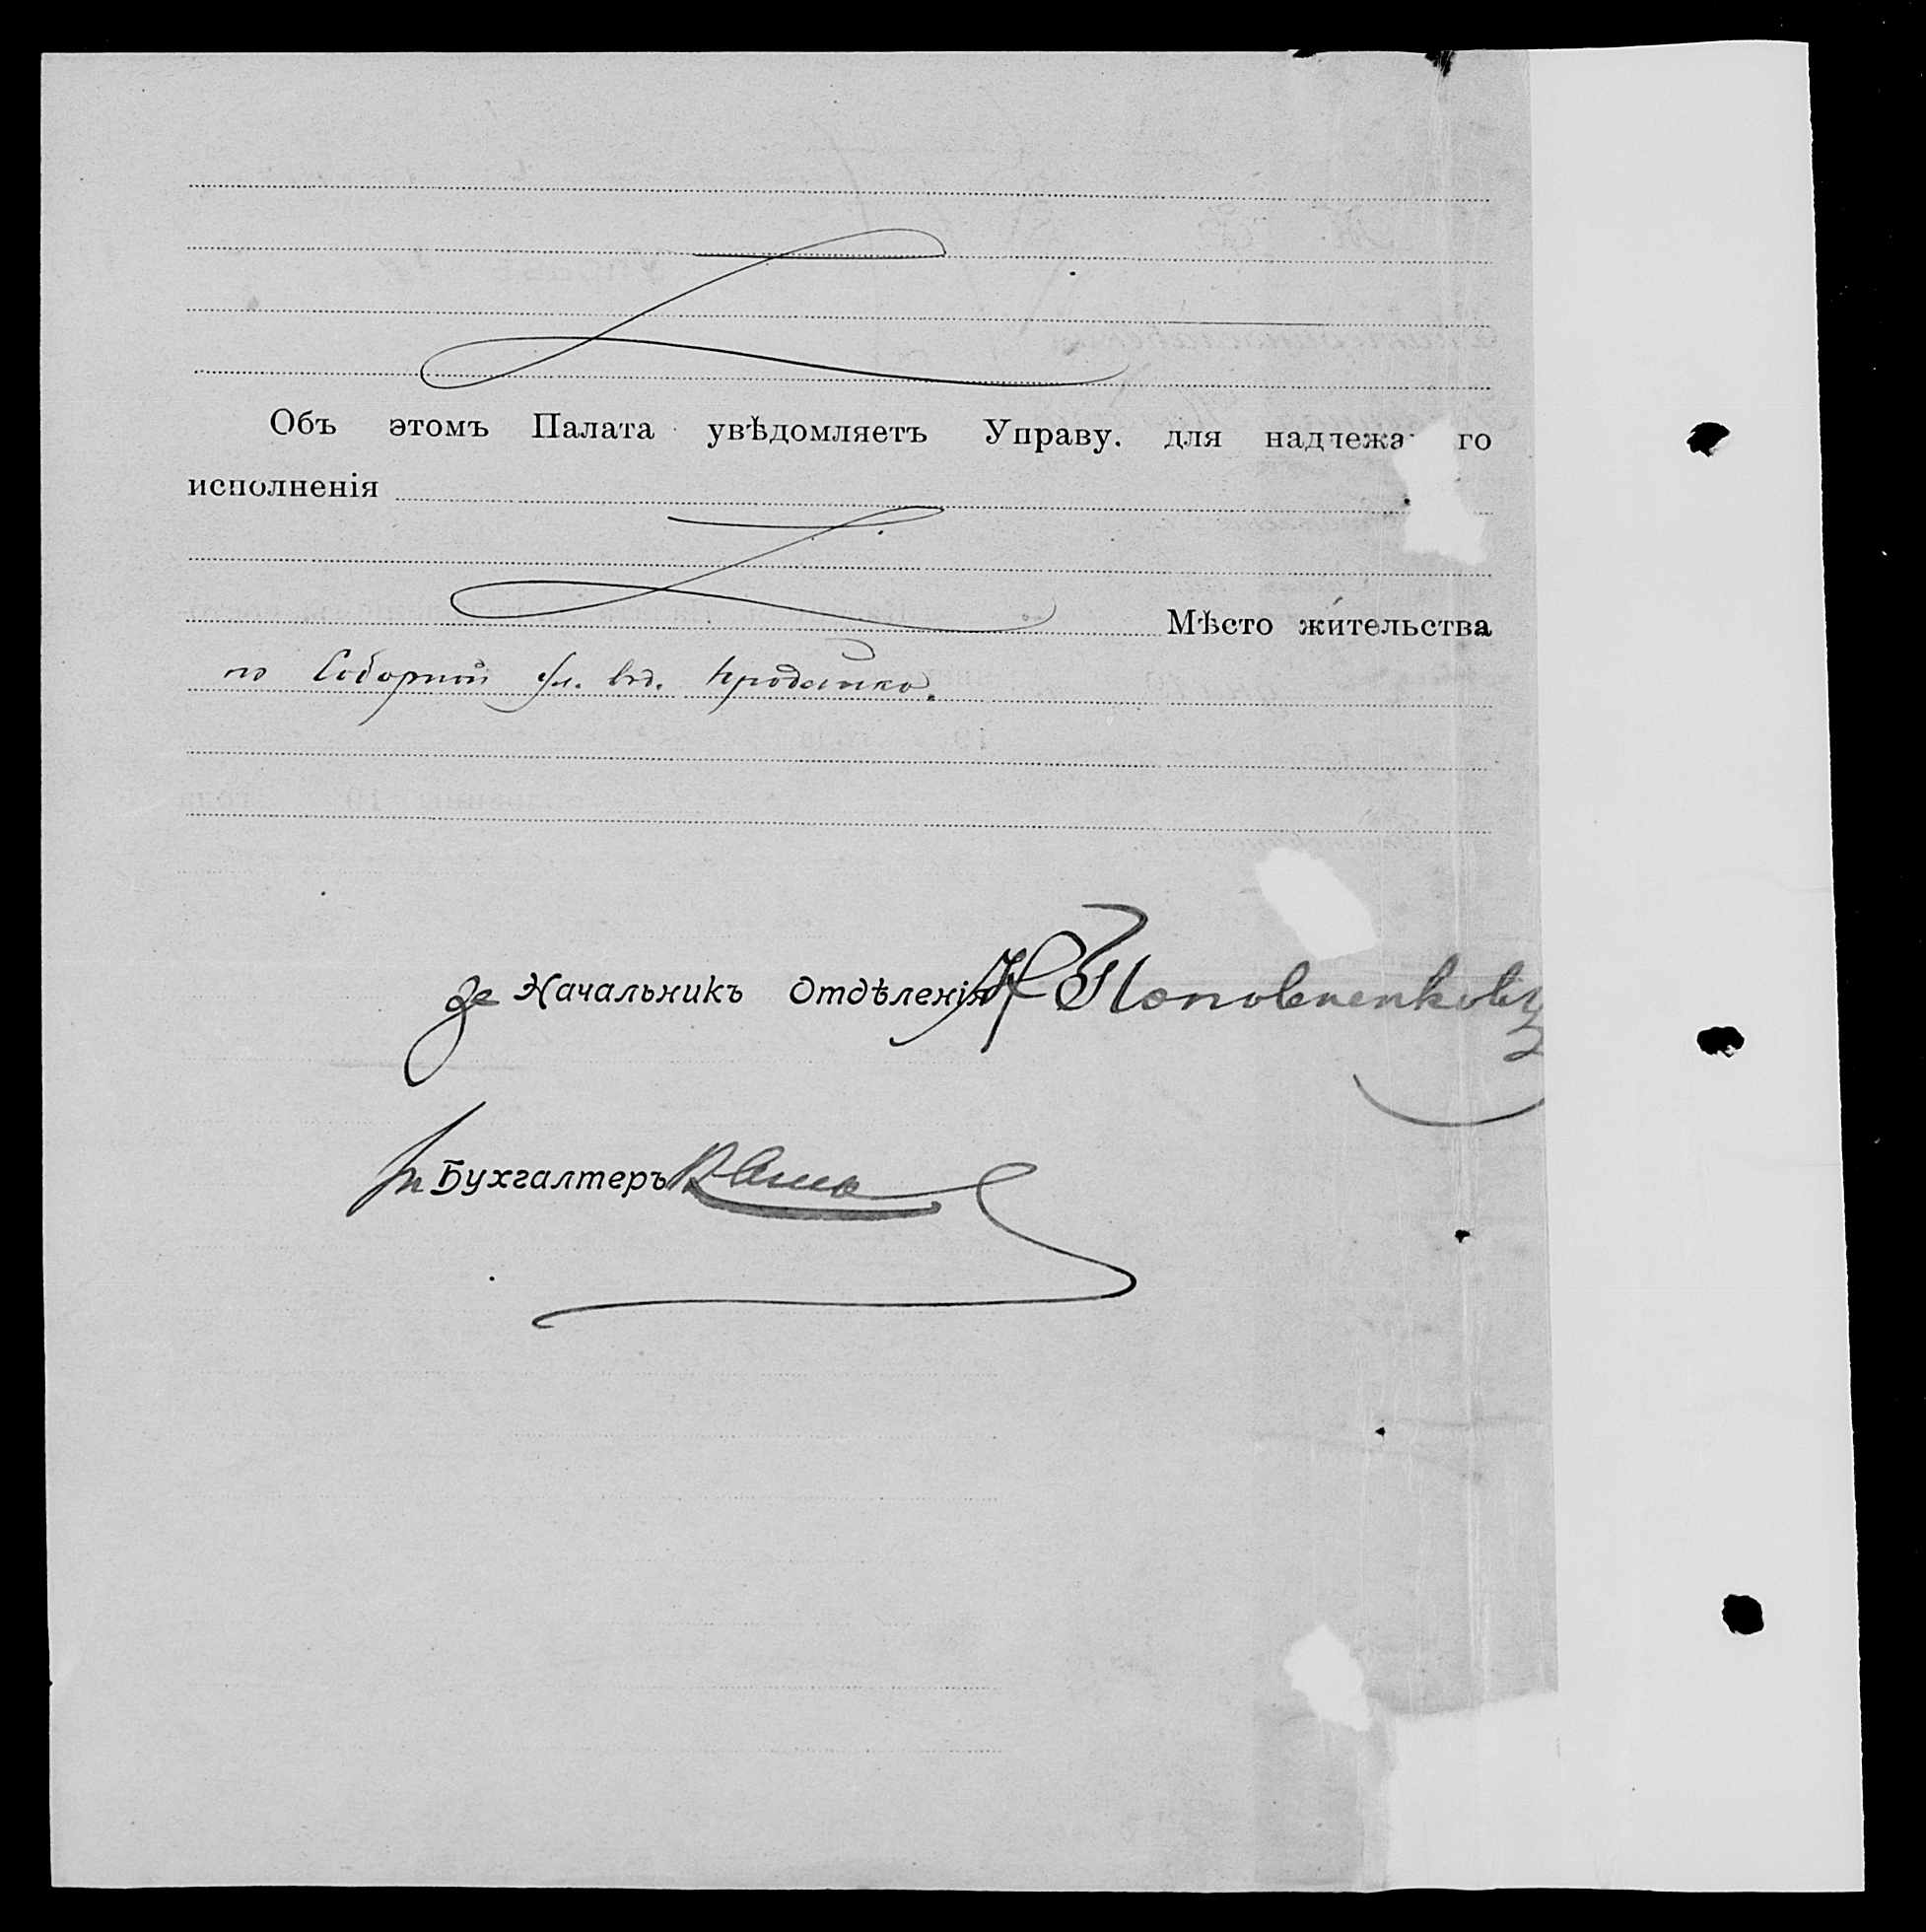 Объ этомъ Палата увѣдомляетъ Управу. для надлежа го
исполненія
Мѣсто жительства
по Соборной ул. вд.
За Начальникъ Отдѣленія
Бухгалтеръ